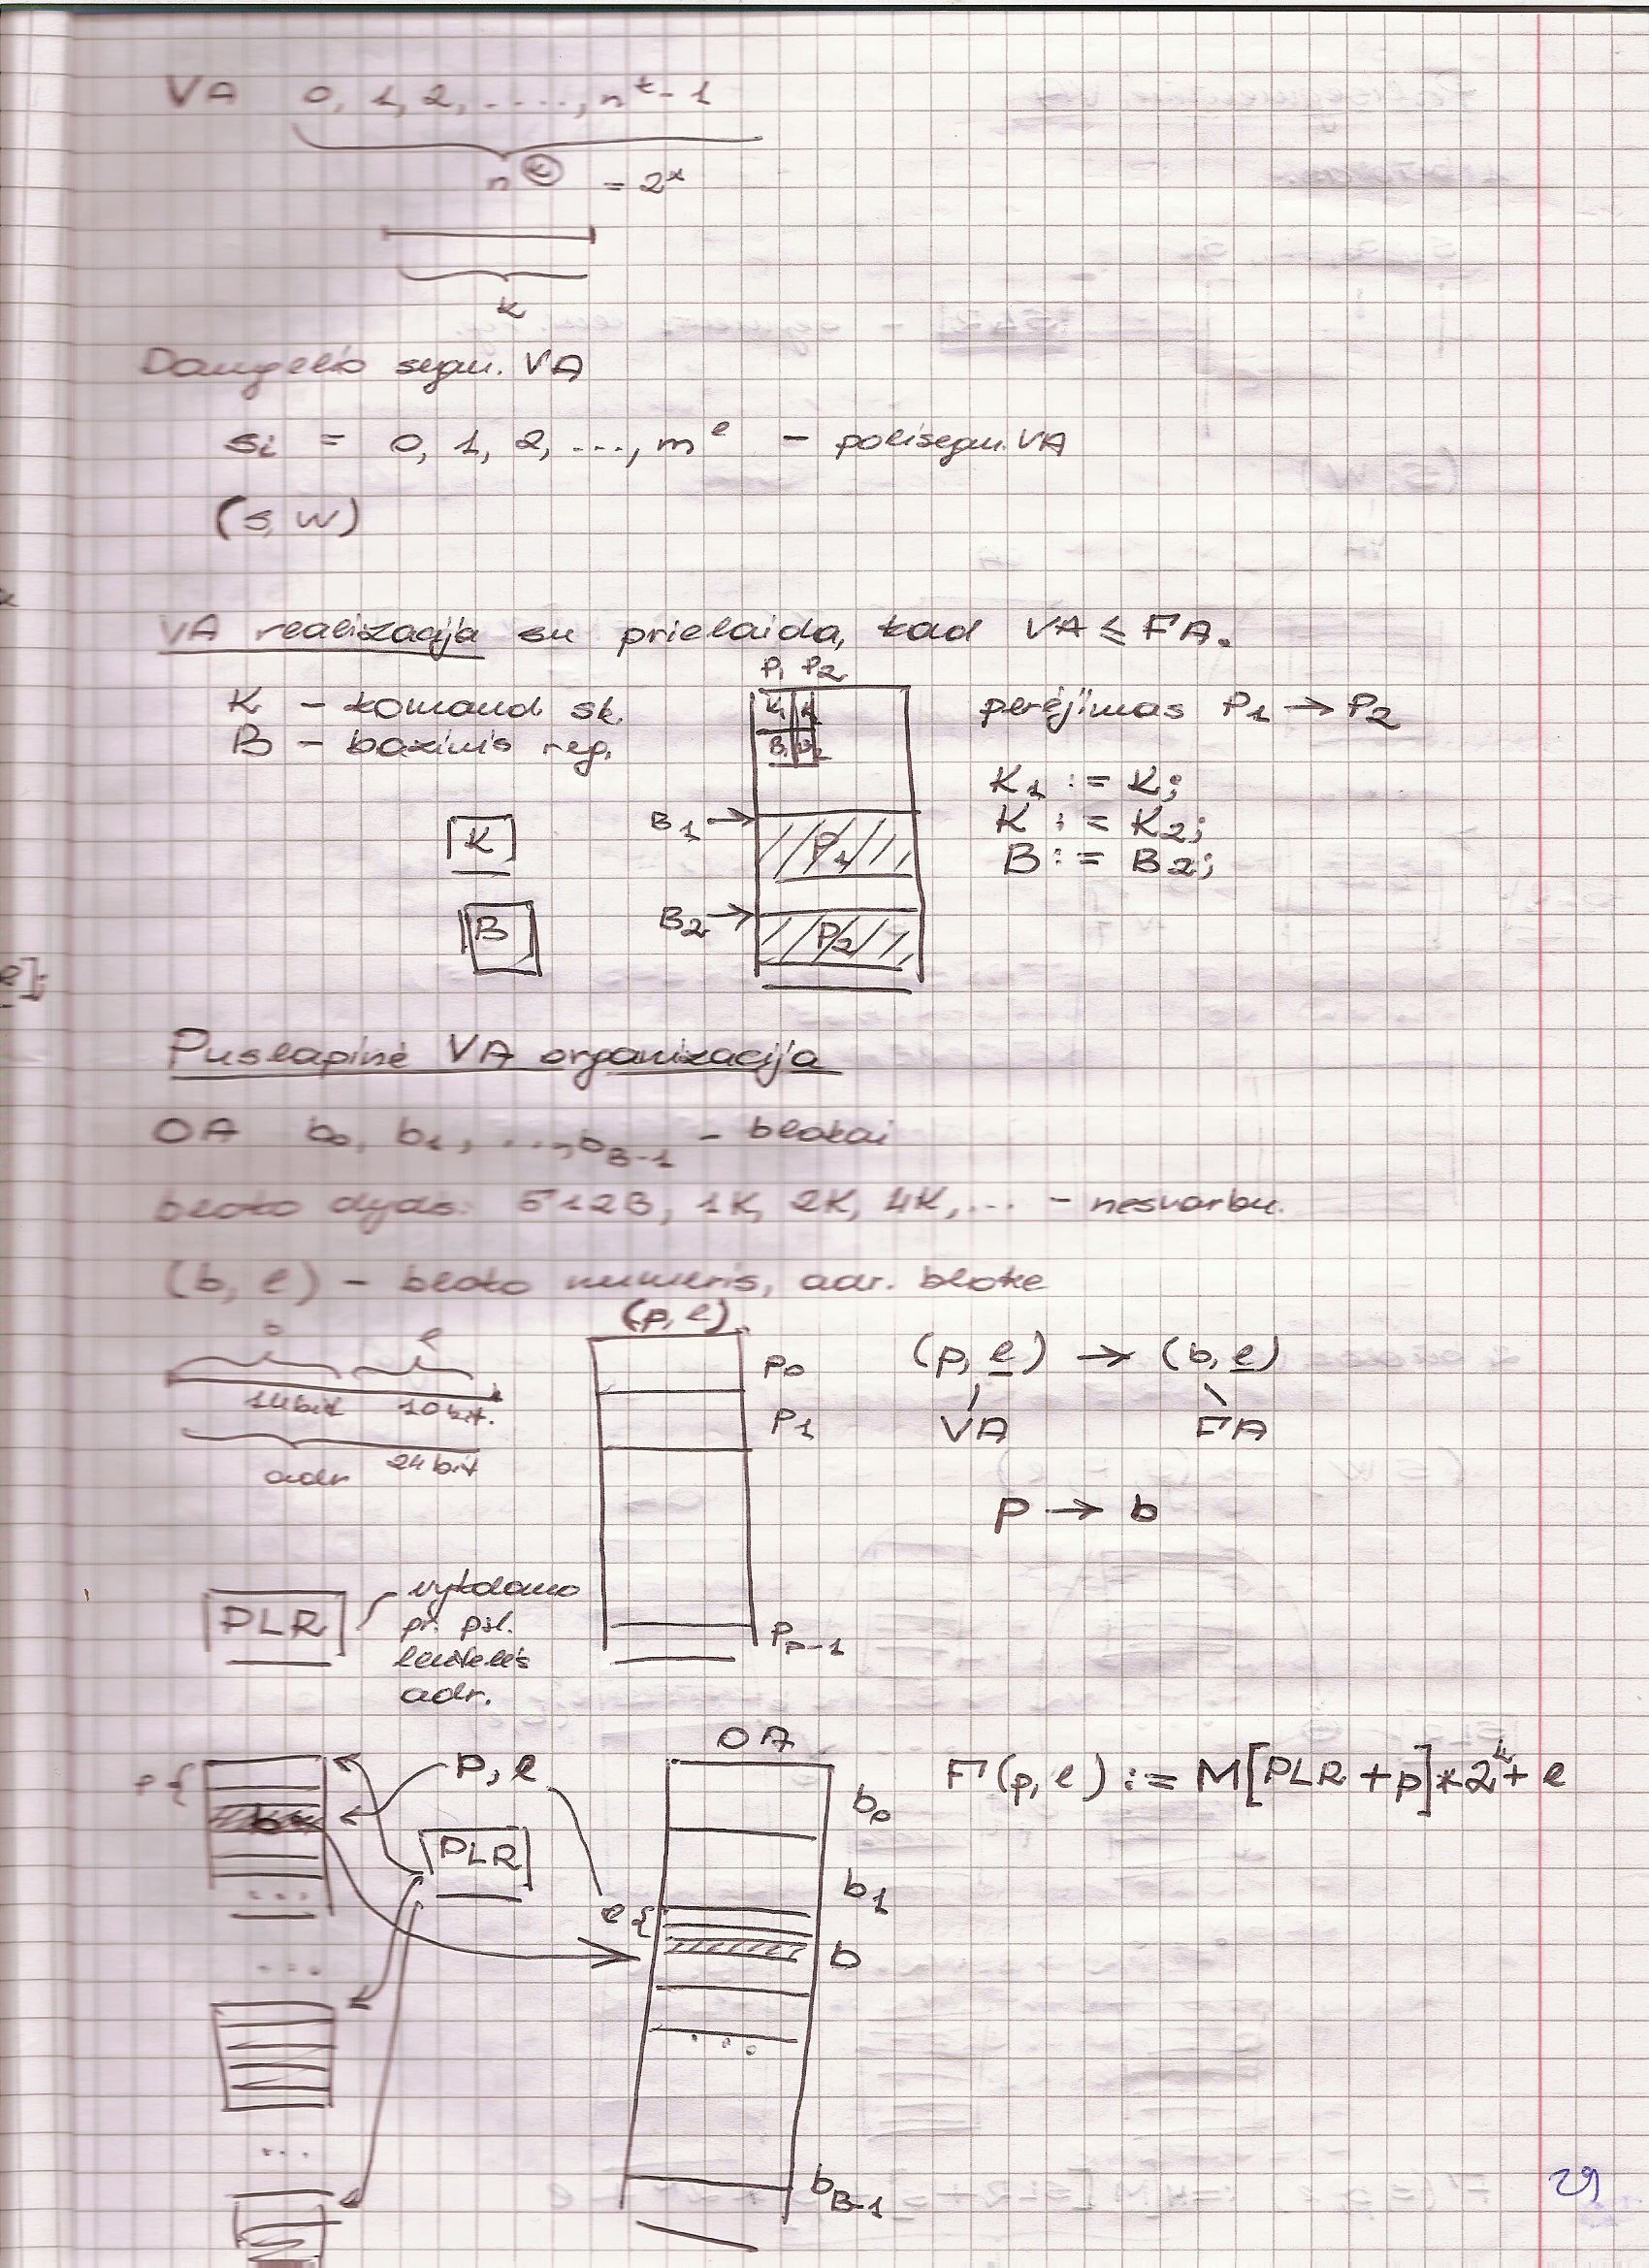 VA 0, 1, 2, ...., n^k - 1
n^k = 2^x
k
Daugelio segm. VA
si = 0, 1, 2, ..., m^l - polisegm. VA
(s, w)
VA realizacija su prielaida, kad VA ≤ FA.
K - komand. sk.
B - bazinis reg.
K
B
P1 P2
K1 K2
B1 B2
B1 → P1
B2 → P2
perėjimas P1 → P2
K1 := K;
K := K2;
B := B2;
Puslapinė VA organizacija
OA b0, b1, ..., bB-1 - blokai
bloko dydis: 512B, 1K, 2K, 4K, ... - nesvarbu.
(b, l) - bloko numeris, adr. bloke
b l
14 bit 10 bit.
adr 24 bit
(p, l)
p0
p1
pp-1
(p, l) → (b, l)
VA FA
p → b
PLR
vykdomo
pr. psl.
lentelės
adr.
p{
b
...
p, l
PLR
...
...
OA
b0
b1
l{
b
...
bB-1
F(p, l) := M[PLR + p] * 2^k + l
29